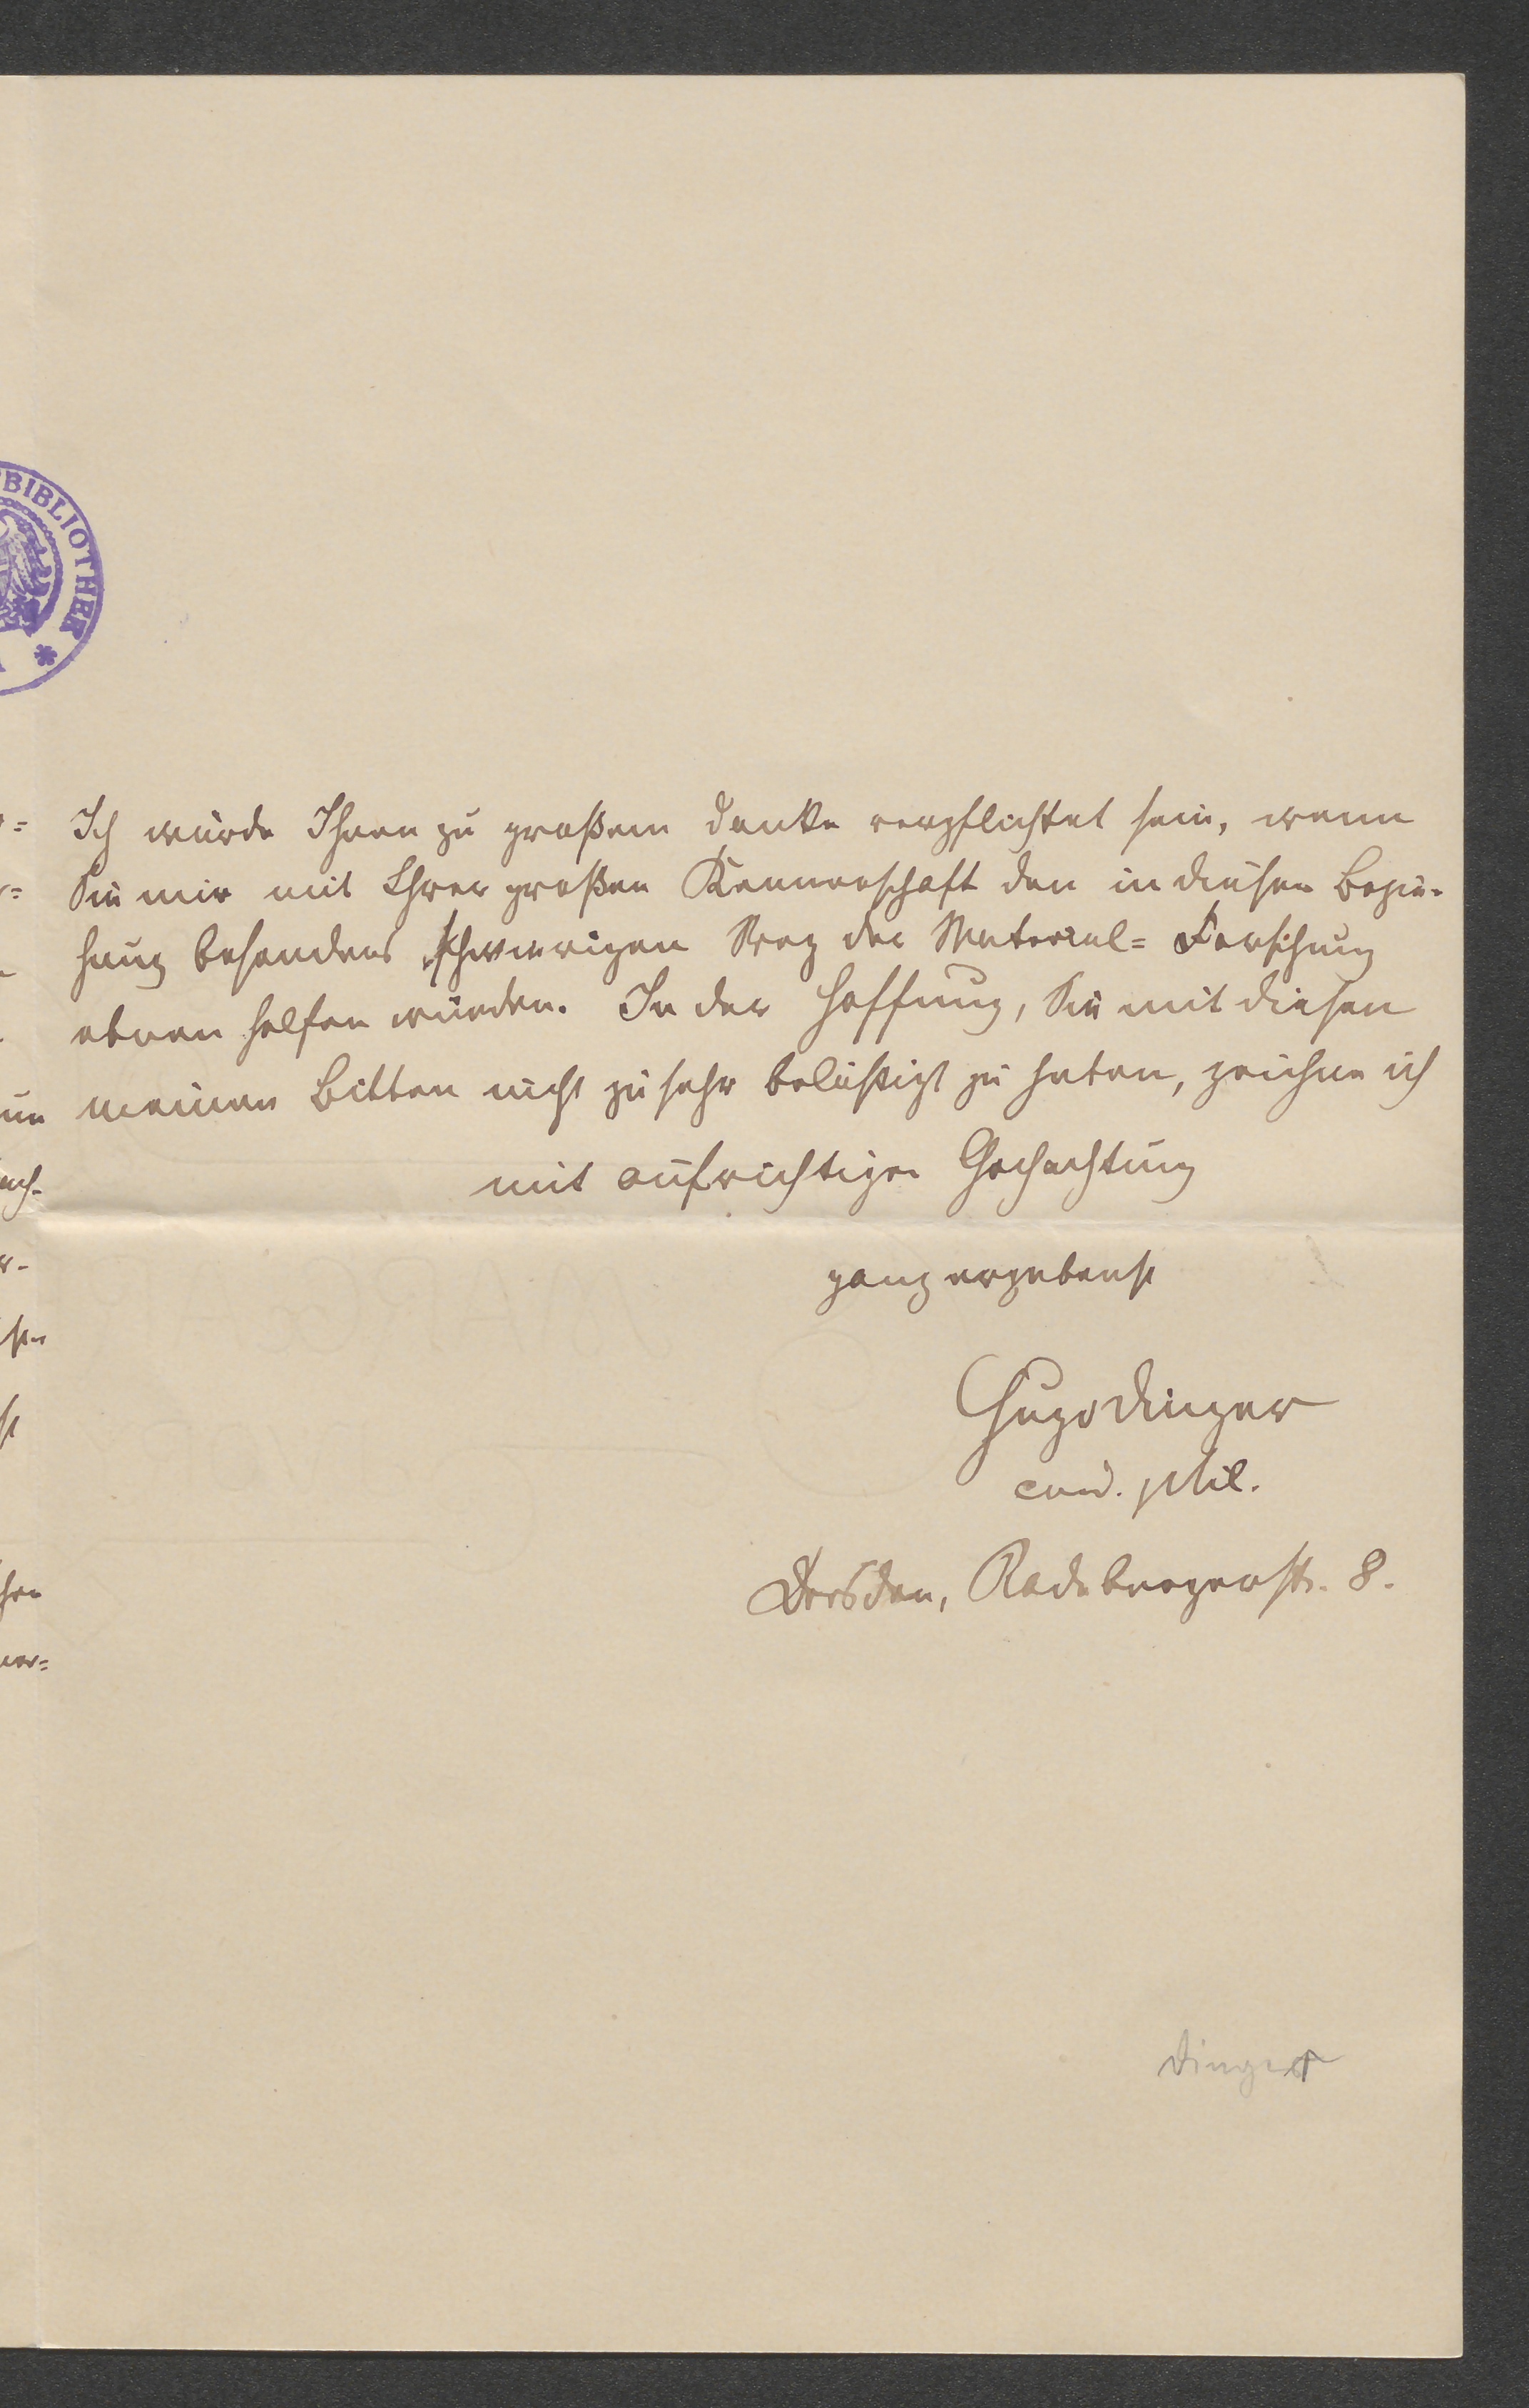 BIBLIOTHEK
Ich würde Ihnen zu großem Danke verpflichtet sein, wenn
Sie mir mit Ihrer großen Kennerschaft den in dieser Bezie-
hung besonders schwierigen Weg der Material= Forschung
ebnen helfen würden. In der Hoffnung, Sie mit diesen
meinen Bitten nicht zu sehr belästigt zu haben, zeichne ich
mit aufrichtiger Hochachtung
ganz ergebenst
Hugo Dinger
cand. phil.
Dresden, Radebergerstr. 8.
Dinger